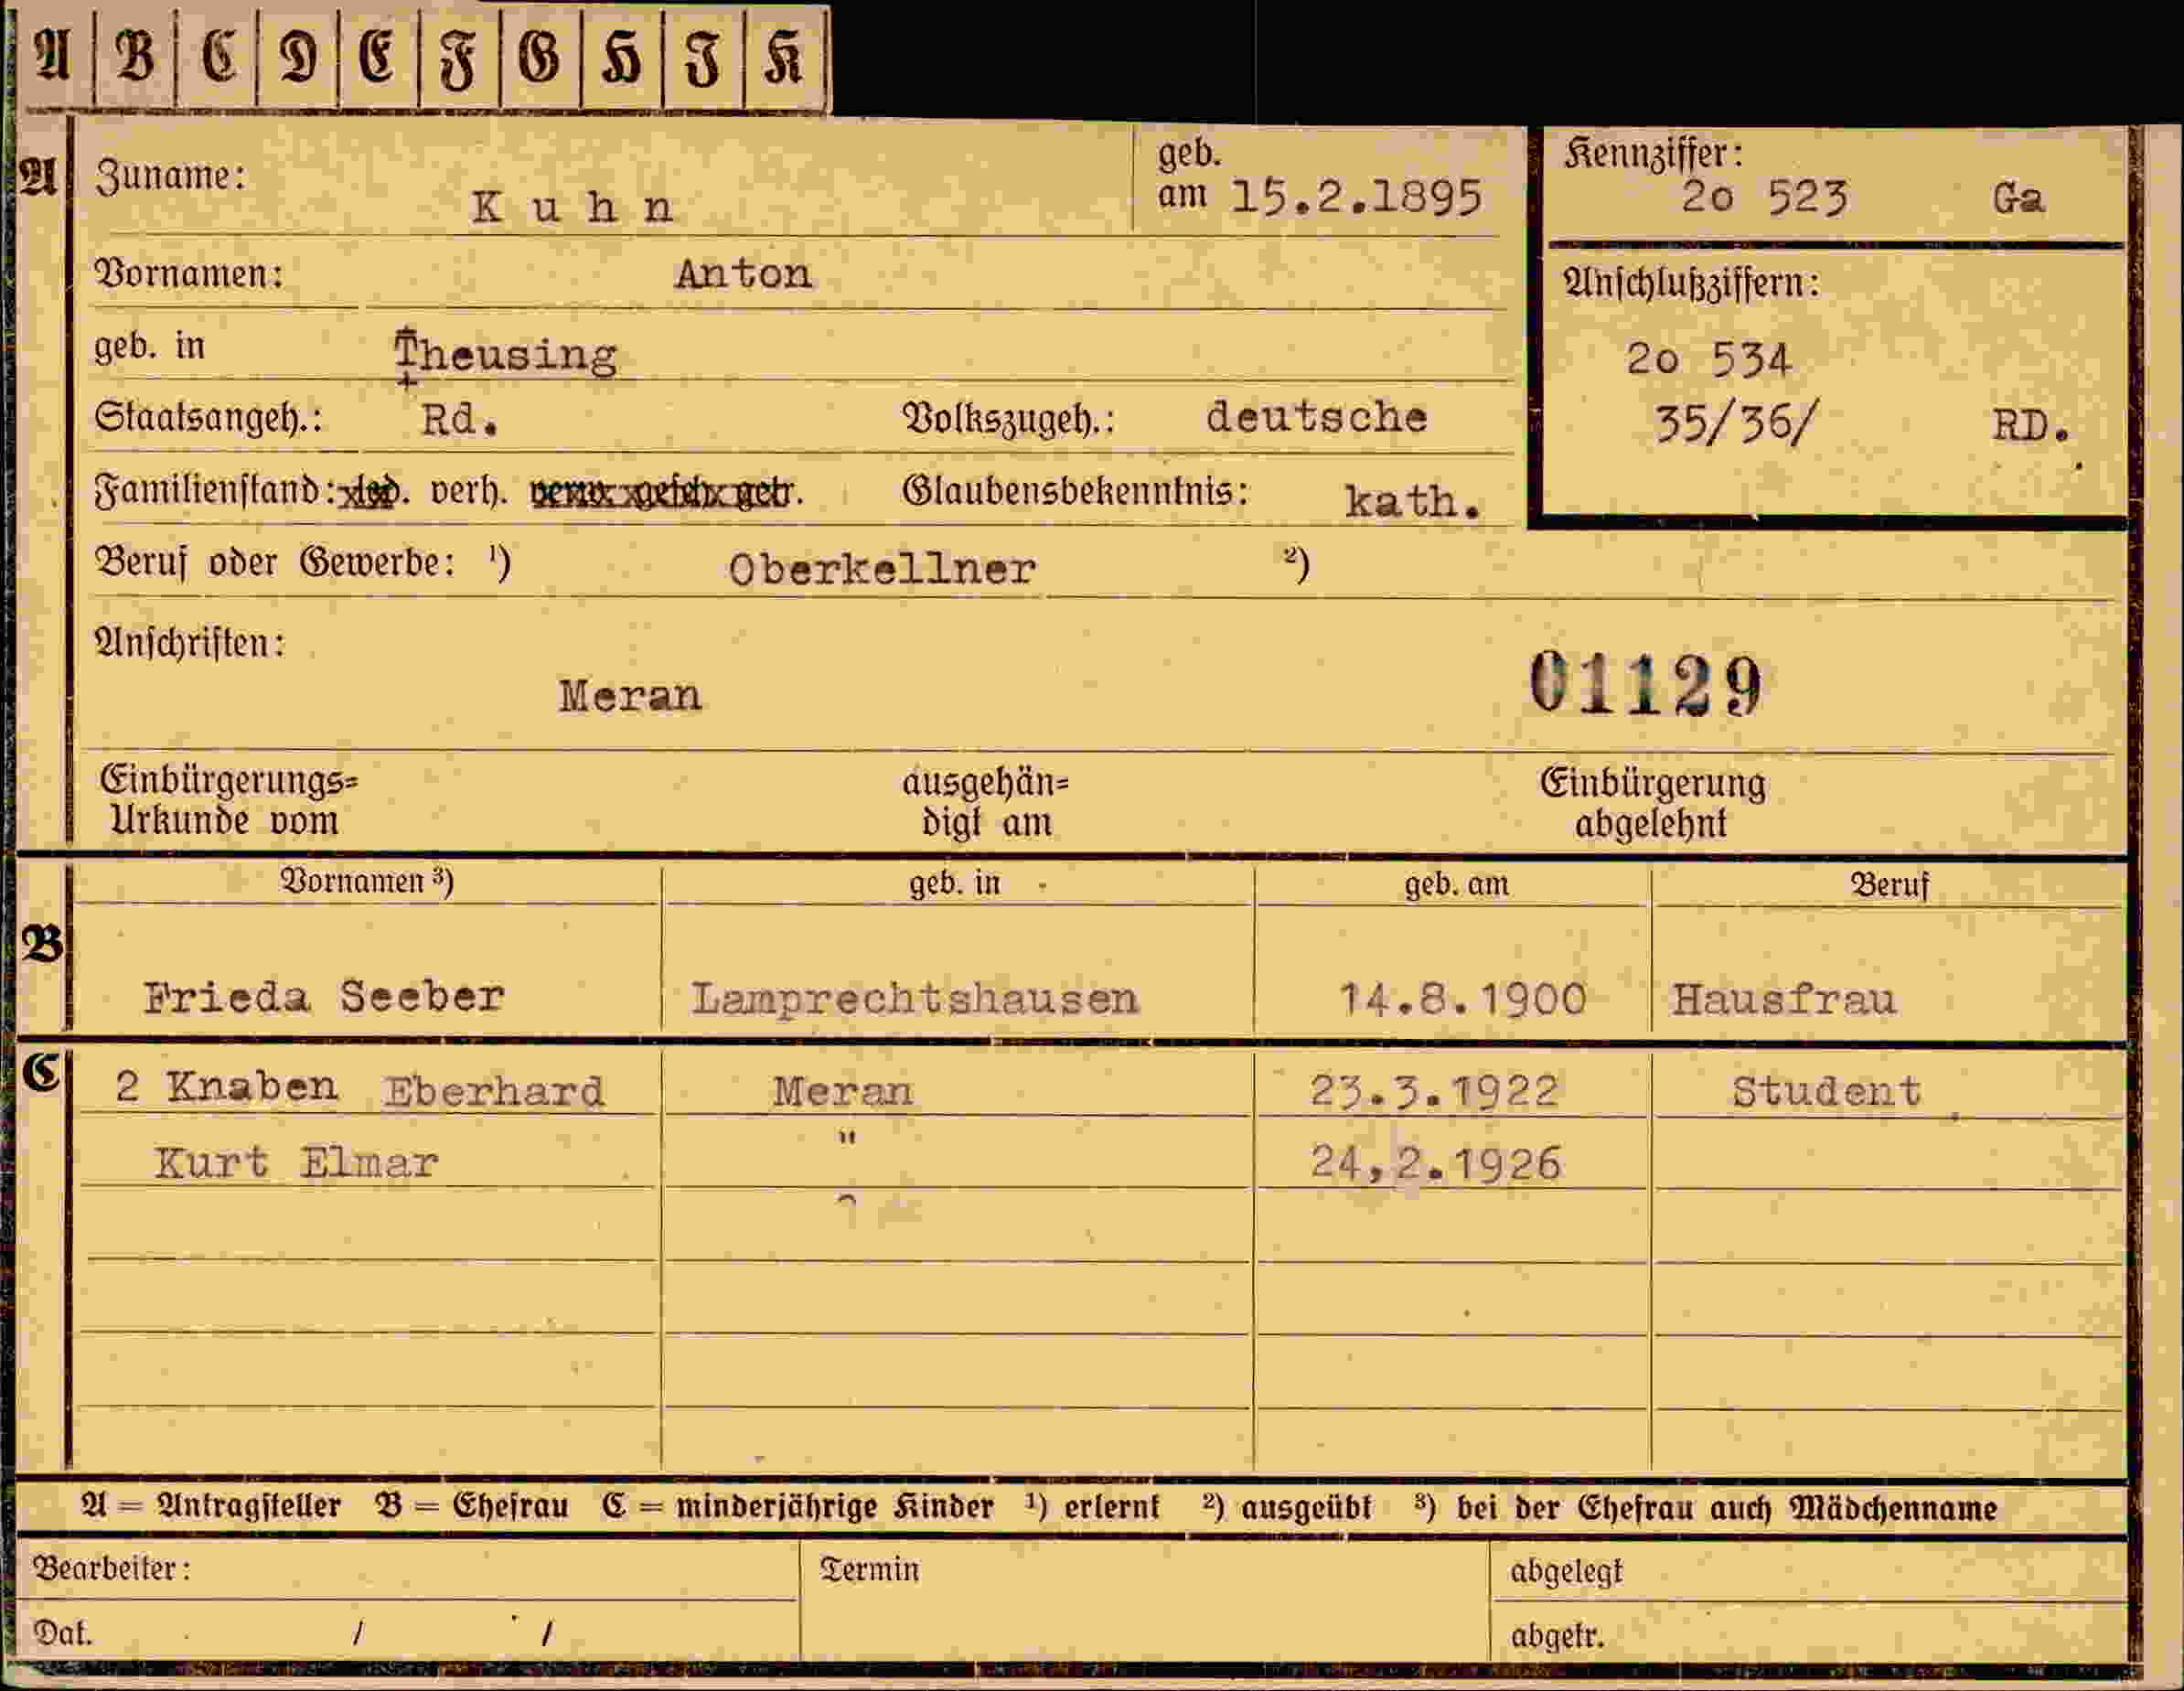 A B C D E F G H I K
A Zuname: Kuhn geb. am 15.2.1895
Kennziffer: 20 523 Ga
Vornamen: Anton
Anschlußziffern:
geb. in Theusing
20 534
Staatsangeh.: Rd. Volkszugeh.: deutsche
35/36/ RD.
Familienstand: led. verh. verw. gesch. getr. Glaubensbekenntnis: kath.
Beruf oder Gewerbe: ¹) Oberkellner ²)
Anschriften:
Meran 01129
Einbürgerungs= ausgehän= Einbürgerung
Urkunde vom digt am abgelehnt
Vornamen ³) geb. in geb. am Beruf
B
Frieda Seeber Lamprechtshausen 14.8.1900 Hausfrau
C 2 Knaben Eberhard Meran 23.3.1922 Student
Kurt Elmar " 24,2.1926
A = Antragsteller B = Ehefrau C = minderjährige Kinder ¹) erlernt ²) ausgeübt ³) bei der Ehefrau auch Mädchenname
Bearbeiter: Termin abgelegt
Dat. / / abgetr.